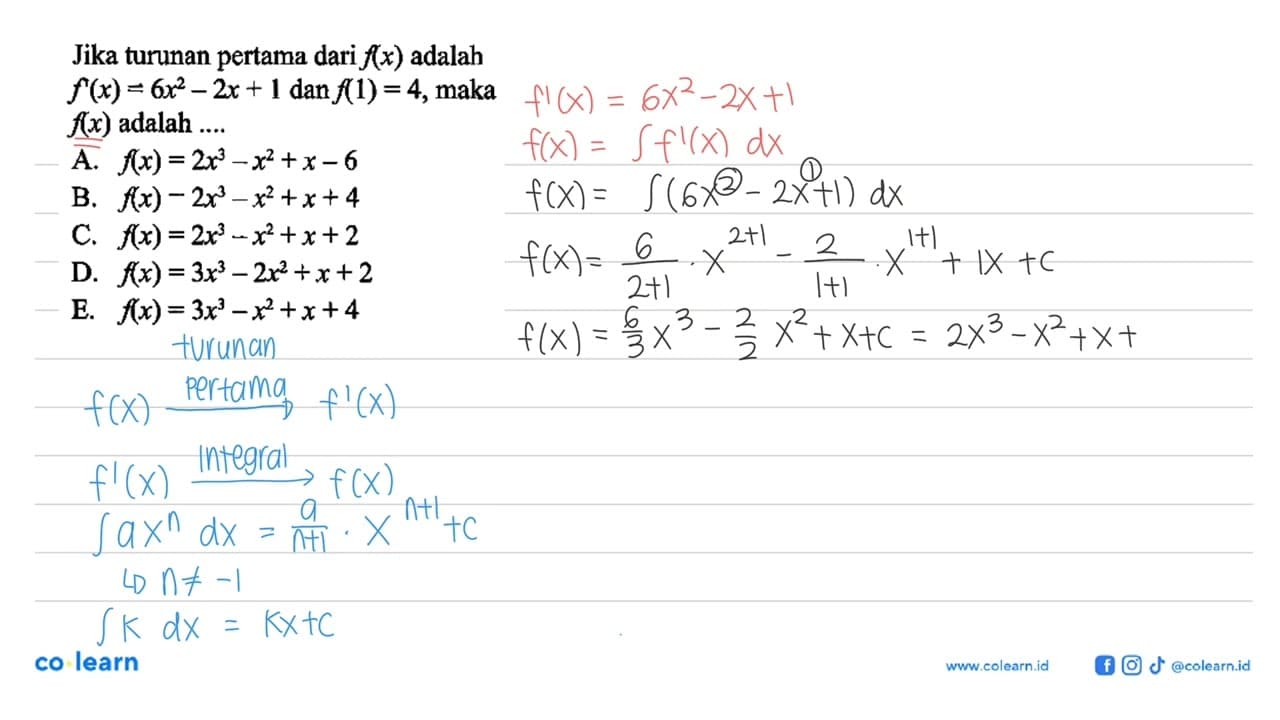 Jika turunan pertama dari f(x) adalah
f'(x) = 6x² – 2x + 1 dan f(1) = 4, maka
f(x) adalah ....
A. f(x) = 2x³ – x² + x – 6
B. f(x) – 2x³ – x² + x + 4
C. f(x) = 2x³ – x² + x + 2
D. f(x) = 3x³ – 2x² + x + 2
E. f(x) = 3x³ – x² + x + 4
turunan
pertama
f(x) → f'(x)
integral
f'(x) → f(x)
∫ax^n dx = a/(n+1) · x^(n+1) + c
↳ n ≠ -1
∫k dx = kx+c
f'(x) = 6x²-2x+1
f(x) = ∫f'(x) dx
f(x) = ∫(6x^② - 2x^①+1) dx
f(x) = 6/(2+1) · x^(2+1) - 2/(1+1) · x^(1+1) + 1x + c
f(x) = 6/3 x³ - 2/2 x² + x+c = 2x³-x²+x+
co learn
www.colearn.id
@colearn.id